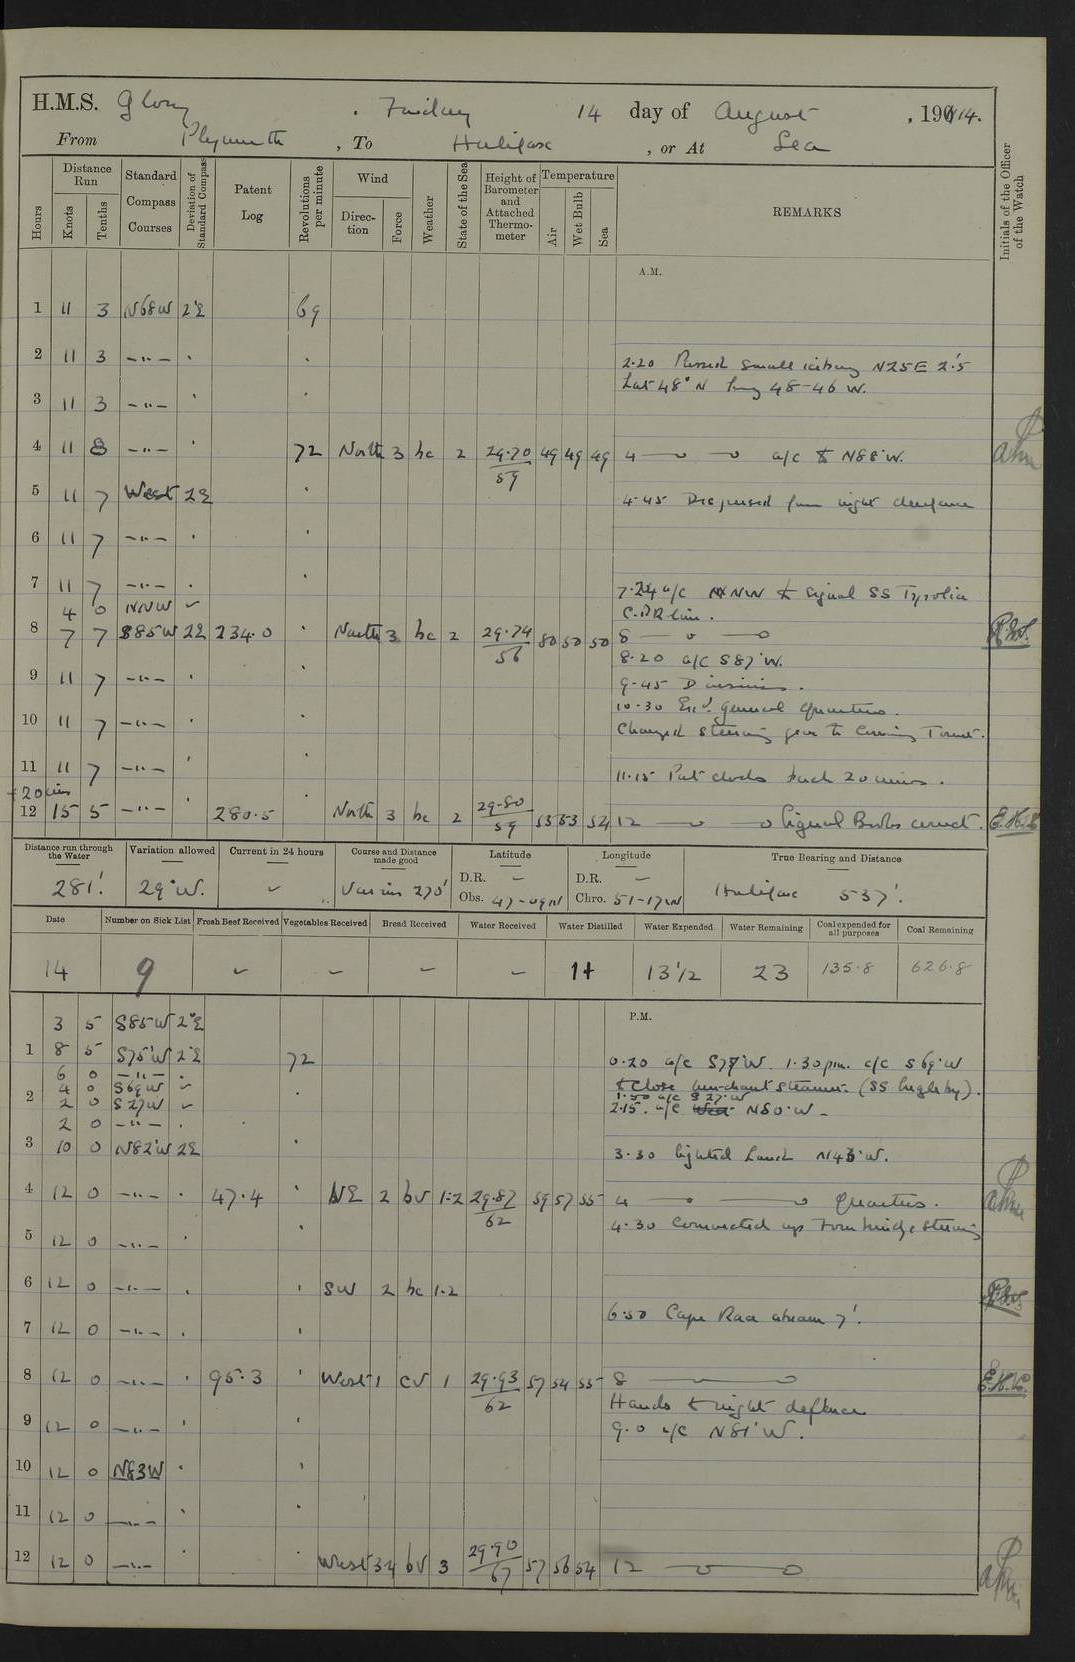 H.M.S. Glory , Friday 14 day of August , 1914.
From Plymouth , To Halifax , or At Sea
Hours Distance Run Knots Tenths Standard Compass Courses Deviation of Standard Compass Patent Log Revolutions per minute Wind Direction Force Weather State of the Sea Height of Barometer and Attached Thermometer Temperature Air Wet Bulb Sea REMARKS Initials of the Officer of the Watch
A.M.
1 11 3 N68W 2°E 69
2 11 3 -"-
2.20 Passed small iceberg N25E 2'.5
Lat 48° N Long 48-46 W.
3 11 3 -"-
4 11 8 -"- 72 North 3 bc 2 29.70/59 49 49 49 4 a/c to N88°W.
5 11 7 West 2E 4.45 Dispersed from night defence
6 11 7 -"-
7 11 7 -"- 7.24 a/c NNW to signal SS Tyrolia
4 0 NNW C.P.R line.
8 7 7 S85W 2E 234.0 North 3 bc 2 29.74/56 50 50 50 8
8.20 a/c S87°W.
9 11 7 -"- 9.45 Divisions.
10.30 Ex'd. General Quarters.
10 11 7 -"- Changed steering gear to Conning Tower.
11 11 7 -"- 11.15 Put clocks back 20 mins.
+20 min
12 15 5 -"- 280.5 North 3 bc 2 29.80/59 53 53 54 12 Signal Books correct. E.H.
Distance run through the Water Variation allowed Current in 24 hours Course and Distance made good Latitude Longitude True Bearing and Distance
281'. 29°W. Various 270' D.R. - Obs. 47-09N D.R. - Chro. 51-17W Halifax 537'.
Date Number on Sick List Fresh Beef Received Vegetables Received Bread Received Water Received Water Distilled Water Expended. Water Remaining Coal expended for all purposes Coal Remaining
14 9 - - - - 14 13½ 23 135.8 626.8
P.M.
3 5 S85W 2°E
1 8 5 S75°W 2°E 72 0.20 a/c S77°W. 1.30 pm. a/c S69°W
6 0 -"-
4 0 S69W to close merchant steamer. (SS Ingleby).
1.50 a/c S27°W
2 2 0 S27W 2.15. a/c N80°W -
2 0 -"-
3 10 0 N82°W 2E 3.30 Sighted Land N43°W.
4 12 0 -"- 47.4 NE 2 bv 1.2 29.87/62 59 57 55 4 Quarters.
4.30 Connected up Fore bridge steering
5 12 0 -"-
6 12 0 -"- SW 2 bc 1.2
6.50 Cape Race abeam 7'.
7 12 0 -"-
8 12 0 -"- 95.3 West 1 cv 1 29.93/62 57 54 55 8 E.H.
Hands to night defence
9 12 0 -"- 9.0 a/c N81°W.
10 12 0 N83W
11 12 0 -"-
12 12 0 -"- West 3.4 bv 3 29.90/67 57 56 54 12